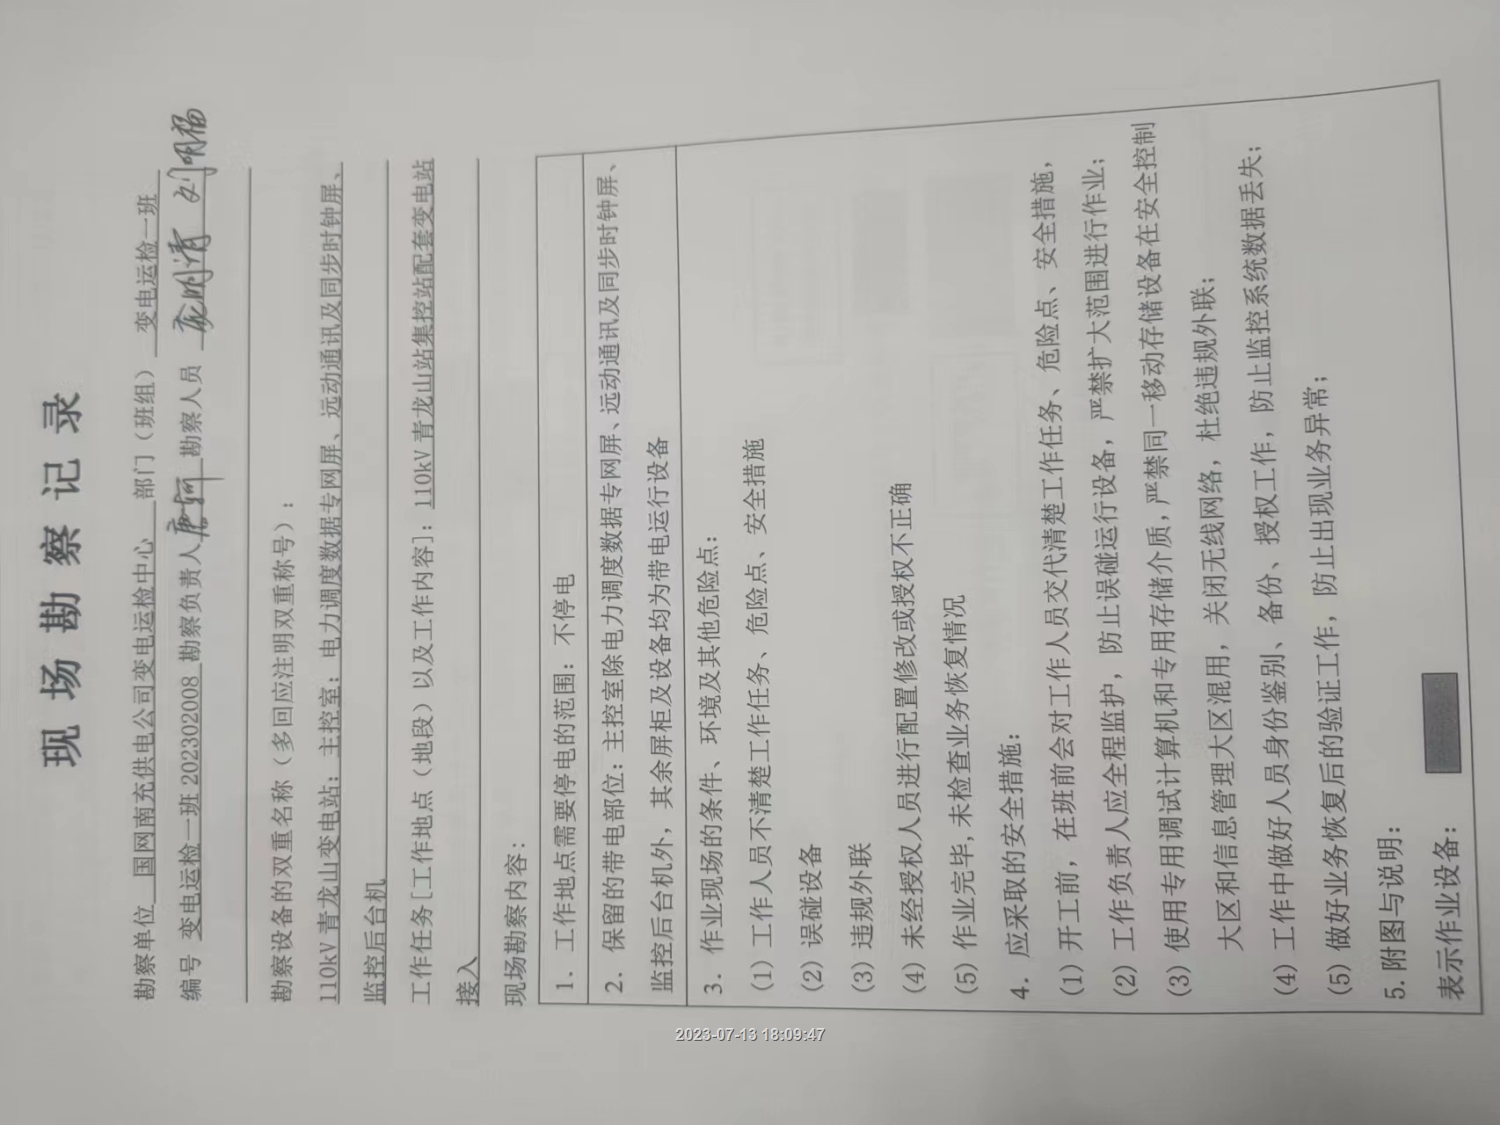 现场勘察记录
勘察单位 国网南充供电公司变电运检中心 部门（班组） 变电运检一班
编号 变电运检一班202302008 勘察负责人 勘察人员
勘察设备的双重名称（多回应注明双重称号）：
110kV青龙山变电站：主控室：电力调度数据专网屏、远动通讯及同步时钟屏、
监控后台机
工作任务[工作地点（地段）以及工作内容]：110kV青龙山站集控站配套变电站
接入
现场勘察内容：
1．工作地点需要停电的范围：不停电
2．保留的带电部位：主控室除电力调度数据专网屏、远动通讯及同步时钟屏、
监控后台机外，其余屏柜及设备均为带电运行设备
3．作业现场的条件、环境及其他危险点：
(1) 工作人员不清楚工作任务、危险点、安全措施
(2) 误碰设备
(3) 违规外联
(4) 未经授权人员进行配置修改或授权不正确
(5) 作业完毕,未检查业务恢复情况
4．应采取的安全措施：
(1) 开工前，在班前会对工作人员交代清楚工作任务、危险点、安全措施，
(2) 工作负责人应全程监护，防止误碰运行设备，严禁扩大范围进行作业；
(3) 使用专用调试计算机和专用存储介质,严禁同一移动存储设备在安全控制
大区和信息管理大区混用，关闭无线网络，杜绝违规外联；
(4) 工作中做好人员身份鉴别、备份、授权工作，防止监控系统数据丢失；
(5) 做好业务恢复后的验证工作，防止出现业务异常；
5. 附图与说明：
表示作业设备：
2023-07-13 18:09:47